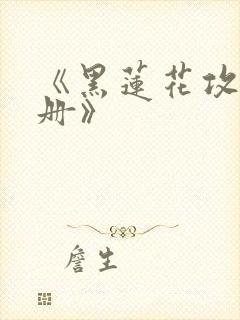 《黑蓮花攻
册》
詹生